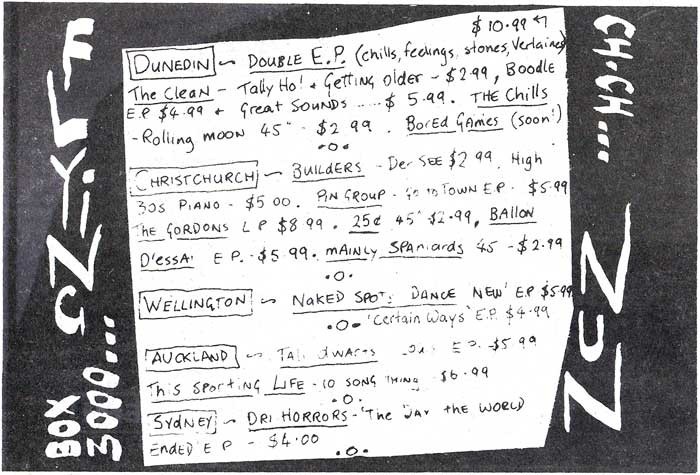 $10.99
DUNEDIN ~ DOUBLE E.P. (chills, feelings, stones, Verlaines)
The Clean - Tally Ho! & Getting older - $2.99, Boodle
E.P $4.99 & Great SOUNDS ..... $ 5.99. THE Chills
- Rolling moon 45" - $2.99. Bored Games (soon!)
CHRISTCHURCH ~ BUILDERS - Der SEE $2.99. High
30s PIANO - $5.00. PIN GROUP - Go to TOWN E.P. $5.99
THE GORDONS L P $8.99. 25¢ 45" $2.99, BAllON
D'essai E P. - $5.99. mAINLY SPANiards 45 - $2.99
WELLINGTON ~ NAKED SPOTS DANCE 'NEW' E.P $5.99
'Certain Ways' E.P. $4.99
AUCKLAND ~ Tall dwarfs E.P. $5.99
This Sporting LIFE - 10 SONG THING $6.99
SYDNEY ~ DRI HORRORS - 'The DAY the WORLD
Ended' E P - $4.00
BOX
3000...
CH.CH...
NZ